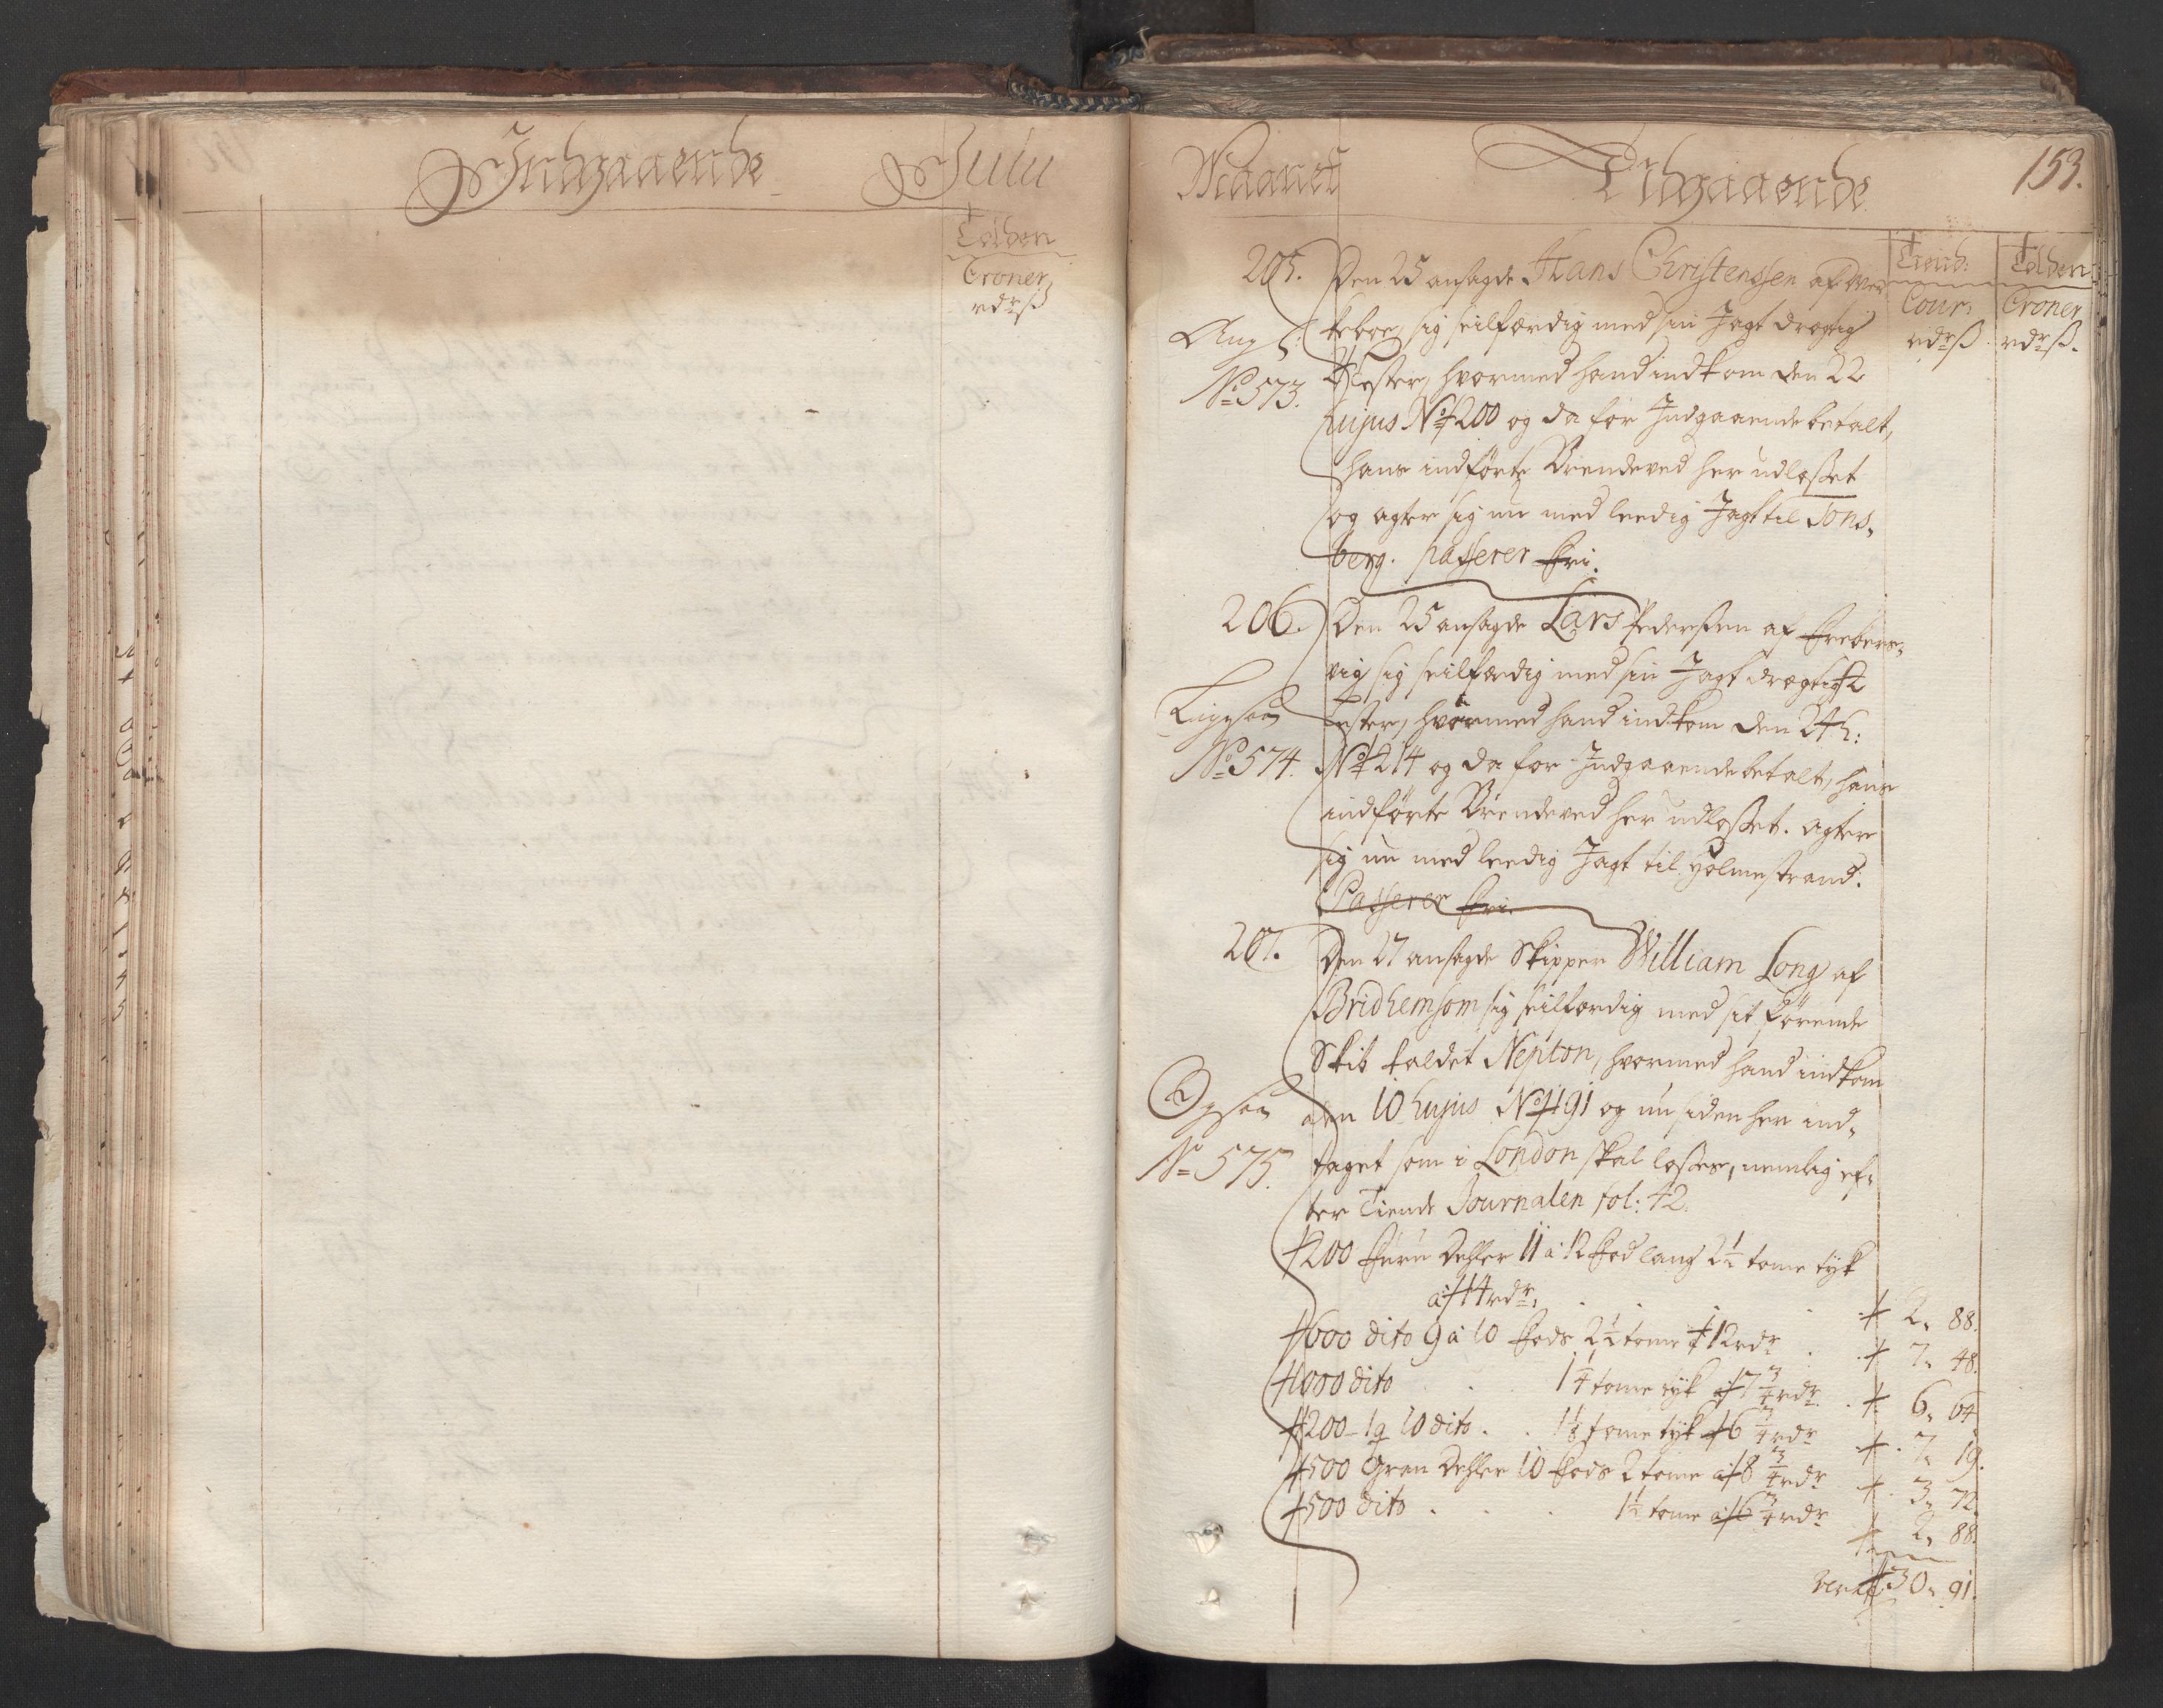 Indgaaende Julii
Tolden
Croner
rdr ß
Maanet Udgaaende 153.
Tiend: Tolden
Cour: Croner
rdr ß rdr ß
205. Den 25 ansagde Hans Christenssen af
keboe, sig seilfærdig med sin Jagt drægtig
No 573. Lester, hvormed hand indkom den 22
hujus No 200 og da for Indgaaende betalt,
hans indførte Brendeved her udlosset
og agter sig nu med leedig Jagt til Tons-
berg. passerer fri.
206. Den 25 ansagde Lars Pederssen af Frebers-
vig sig seilfærdig med sin Jagt drægtig 2
Lester, hvormed hand indkom den 24 h:
No 574. No 214 og da for Indgaaende betalt, hans
indførte Brendeved her udlosset. agter
sig nu med leedig Jagt til Holmestrand.
Passerer fri.
207. Den 27 ansagde Skipper William Long af
Bridhemsom sig seilfærdig med sit førende
Skib kaldet Nepton, hvormed hand indkom
den 10 hujus No 191 og nu siden her ind-
No 575. taget som i London skal losses, nemlig ef-
ter Tiende Journalen fol: 42.
200 furu Dehler 11 a 12 fod lang 2½ tome tyk
a 14 rdr. 2, 88.
600 dito 9 a 10 fods 2½ tome 12 rdr 7, 48.
1000 dito 1¼ tome tyk a 7¾ rdr. 6, 64
1200 dito 1⅛ tome tyk 6¾ rdr 7, 19.
500 Gran Dehler 10 fods 2 tome a 8¾ rdr 3, 72
500 dito 1½ tome a 6¾ rdr 2, 88.
30, 91.